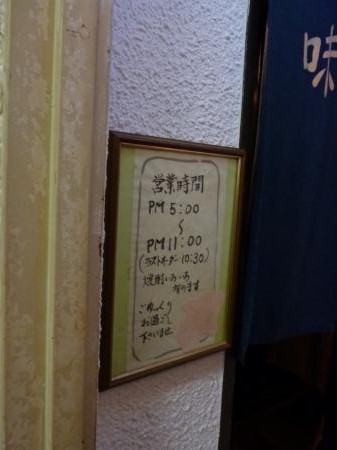 味
営業時間
PM 5:00
〜
PM 11:00
(ラストオーダー 10:30)
焼酎いろいろ
有ります
ごゆっくり
お過ごし
下さいませ